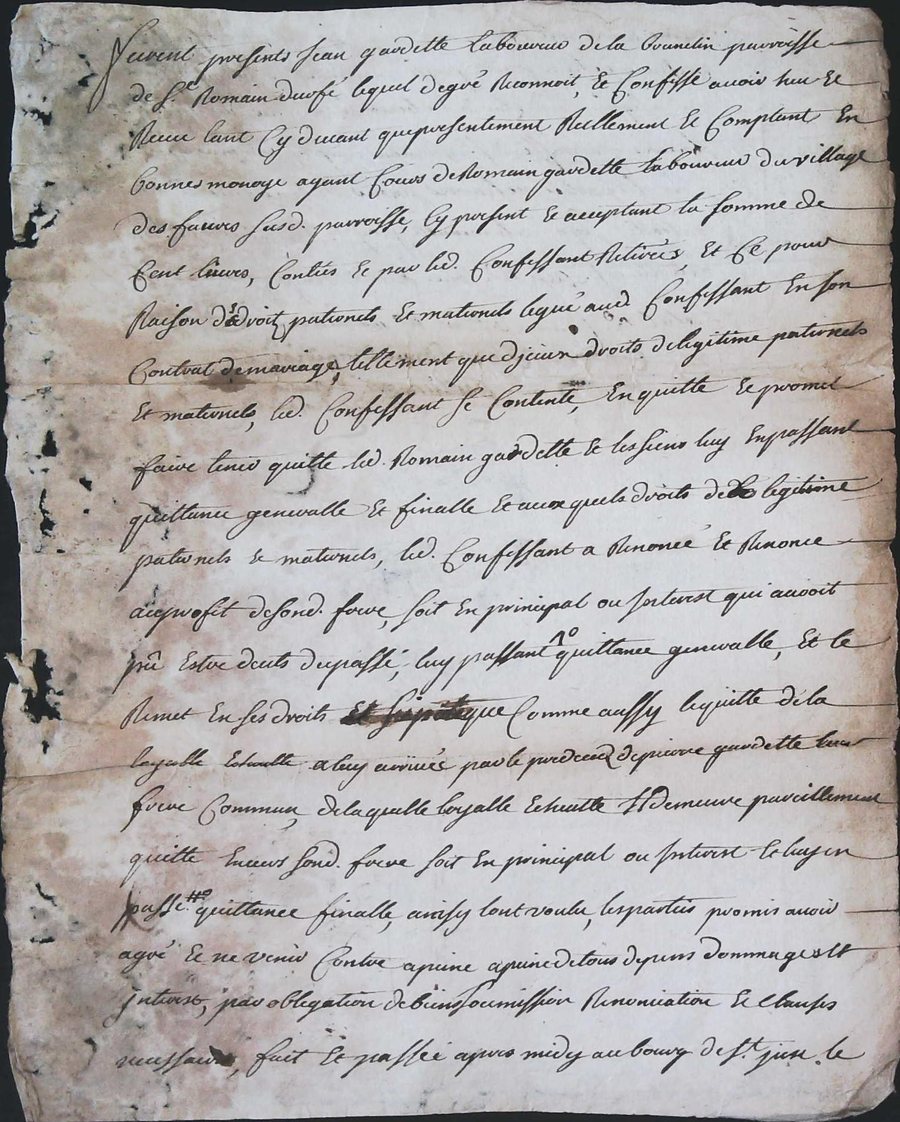 furent presents Jean gardette laboureur de la parroisse
de St Romain durfé lequel de gré Reconnoit, Et Confesse avoir heu Et
Receu tant Cy devant que presentement Reellement Et Comptant En
bonne monoye ayant Cours de Romain gardette laboureur du village
des fauvres susd. parroisse, Cy present Et acceptant la somme de
Cent livres, Contées Et par led. Confessant Retirées, Et Ce pour
Raison des droitz paternels Et maternels legué aud Confessant En son
Contrat de mariage, tellement que diceux droits de legitime paternels
Et maternels, led. Confessant se Contente, En quitte Et promet
faire tenir quitte led. Romain gardette Et les siens luy En passant
quittance generalle Et finalle Et aux quels droits de legitime
paternels Et maternels, led. Confessant a Renoncé Et Renonce
au profit de sond. frere, soit En principal ou Interest qui auroit
pu Estre deub du passé, luy passant quittance generalle, Et le
Remet En ses droits Et hipoteque Comme aussy le quitte de la
loyalle Echeutte a luy arrivée par le predeced de pierre gardette leur
frere Commun, de la quelle loyalle Echeutte Il demeure pareillement
quitte Envers sond. frere soit En principal ou Interest Et luy en
passe quittance finalle, ainsy lont voulu, les parties promis avoir
agré Et ne venir Contre a peine a peine de tous depens dommages Et
Interest, par obligation de biens soumission Renonciation Et clauses
necessaires, fait Et passée apres midy au bourg de St just le